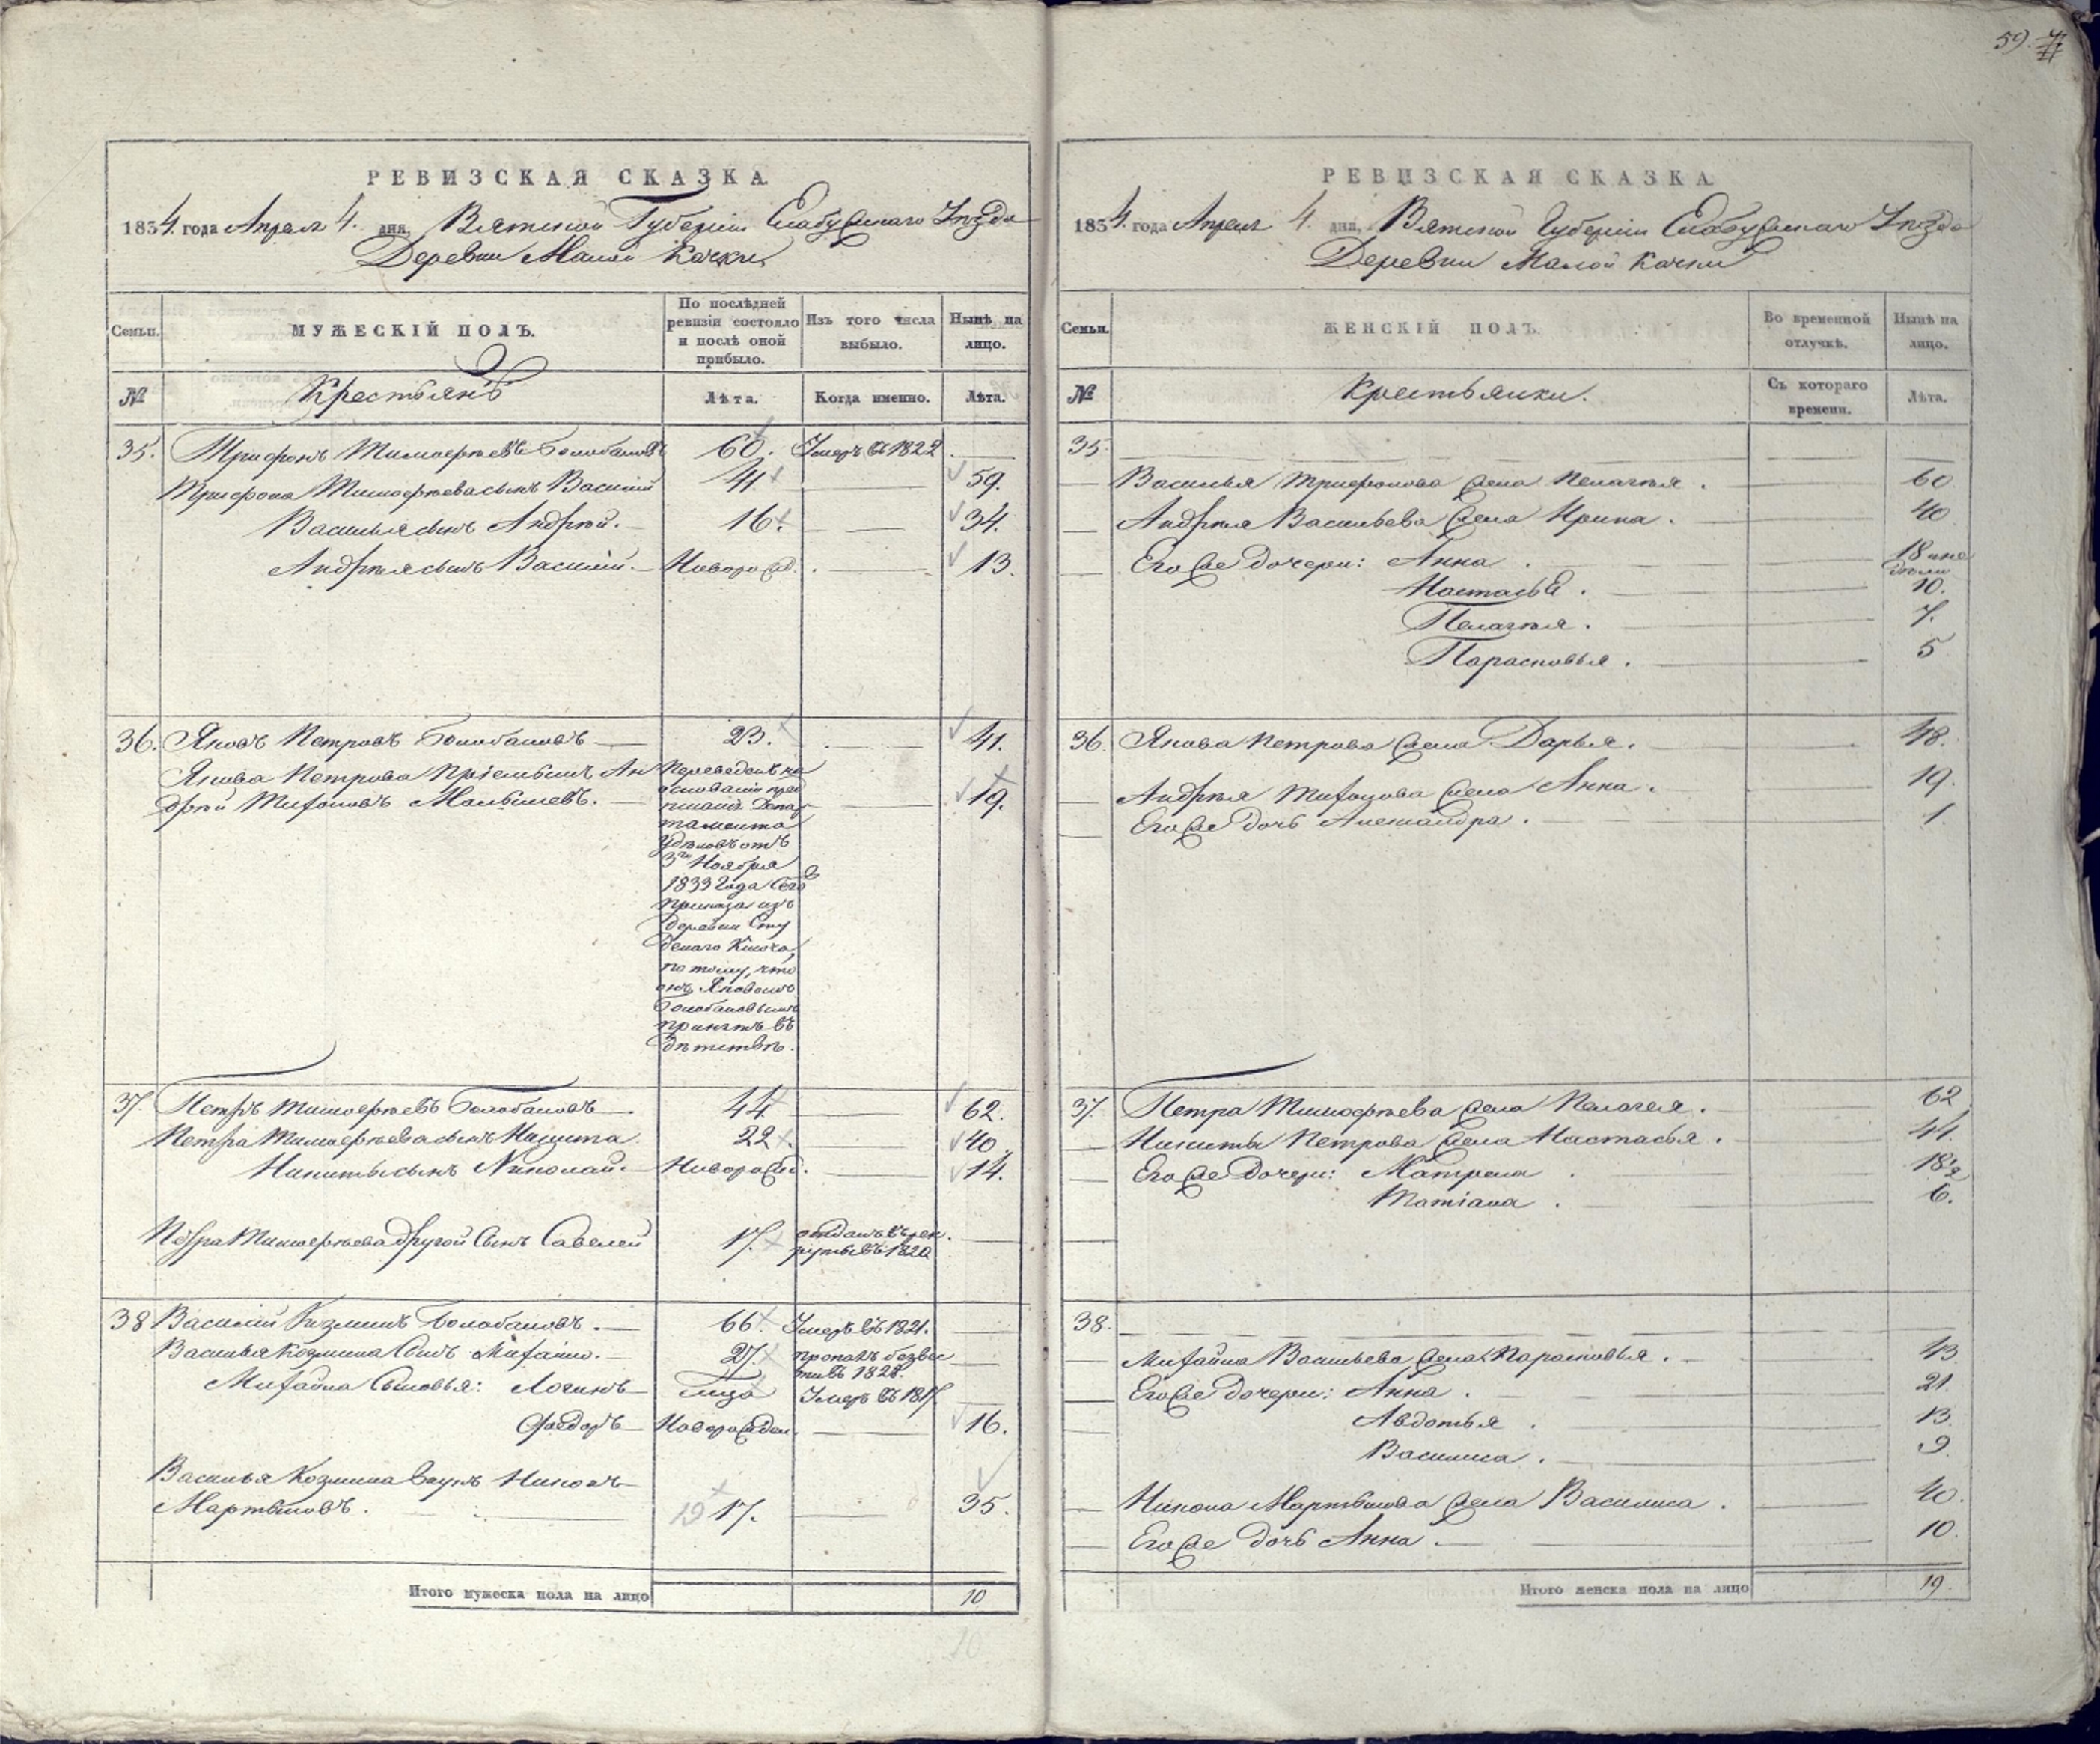 59.
РЕВИЗСКАЯ СКАЗКА.
1834. года Апреля 4. дня, Вятской Губерніи Елабужскаго Уѣзда
Деревни Малой Качки
Семьи.
МУЖЕСКІЙ ПОЛЪ.
По послѣдней ревизіи состояло и послѣ оной прибыло.
Изъ того числа выбыло.
Нынѣ на лицо.
№
Крестьянъ
Лѣта.
Когда именно.
Лѣта.
35. Трифонъ Тимоѳеевъ Болобановъ 60. Умеръ въ 1822
Трифона Тимофеева сынъ Василій 41 59.
Василья сынъ Андрей. 16. 34.
Андрея сынъ Василій. Новорожд. 13.
36. Яковъ Петровъ Болобановъ 23. 41.
Якова Петрова Пріемышъ Ан
дрей Титовъ Малышевъ. 19.
Переведенъ на
основаніи пред
писанія Депар
тамента
Удѣловъ отъ
3го Ноября
1833 Года Сего
приказа изъ
деревни Сту
денаго Ключа,
потому, что
онъ Яковомъ
Болобановымъ
принятъ въ
дѣтствѣ.
37. Петръ Тимофеевъ Болобановъ 44 62.
Петра Тимофеева сынъ Никита 22. 40.
Никиты сынъ Николай. Новорожд. 14.
Петра Тимофеева другой Сынъ Савелей 17. отданъ въ рек
руты въ 1820
38 Василій Козминъ Болобановъ. 66. Умеръ въ 1821.
Василья Козмина Сынъ Михайло. 27. пропалъ безвес
ти въ 1828.
Михайла Сыновья: Логинъ Умеръ въ 1817
Федоръ Новорожден. 16.
Василья Козмина внукъ Никонъ
Мартыновъ. 19 17. 35.
Итого мужеска пола на лицо 10
10
РЕВИЗСКАЯ СКАЗКА
1834. года Апреля 4. дня, Вятской Губерніи Елабужскаго Уѣзда
Деревни Малой Качки
Семьи.
ЖЕНСКІЙ ПОЛЪ.
Во временной отлучкѣ.
Нынѣ на лицо.
№
Крестьянки.
Съ котораго времени.
Лѣта.
35
Василья Трифонова жена Пелагея. 60
Андрея Васильева жена Ирина. 40
Его же дочери: Анна. 18 не
дѣли
Настасья. 10.
Пелагея. 7.
Парасковья. 5
36. Якова Петрова жена Дарья. 48.
Андрея Титова жена Анна. 19.
Его же дочь Александра. 1.
37. Петра Тимофеева жена Пелагея. 62
Никиты Петрова жена Настасья. 41.
Его же дочери: Матрена. 18½
Татіана. 6.
38.
Михайла Васильева жена Парасковья. 43
Его же дочери: Анна. 21.
Авдотья. 13.
Василиса. 9
Никона Мартынова жена Василиса. 40.
Его же дочь Анна. 10.
Итого женска пола на лицо 19.